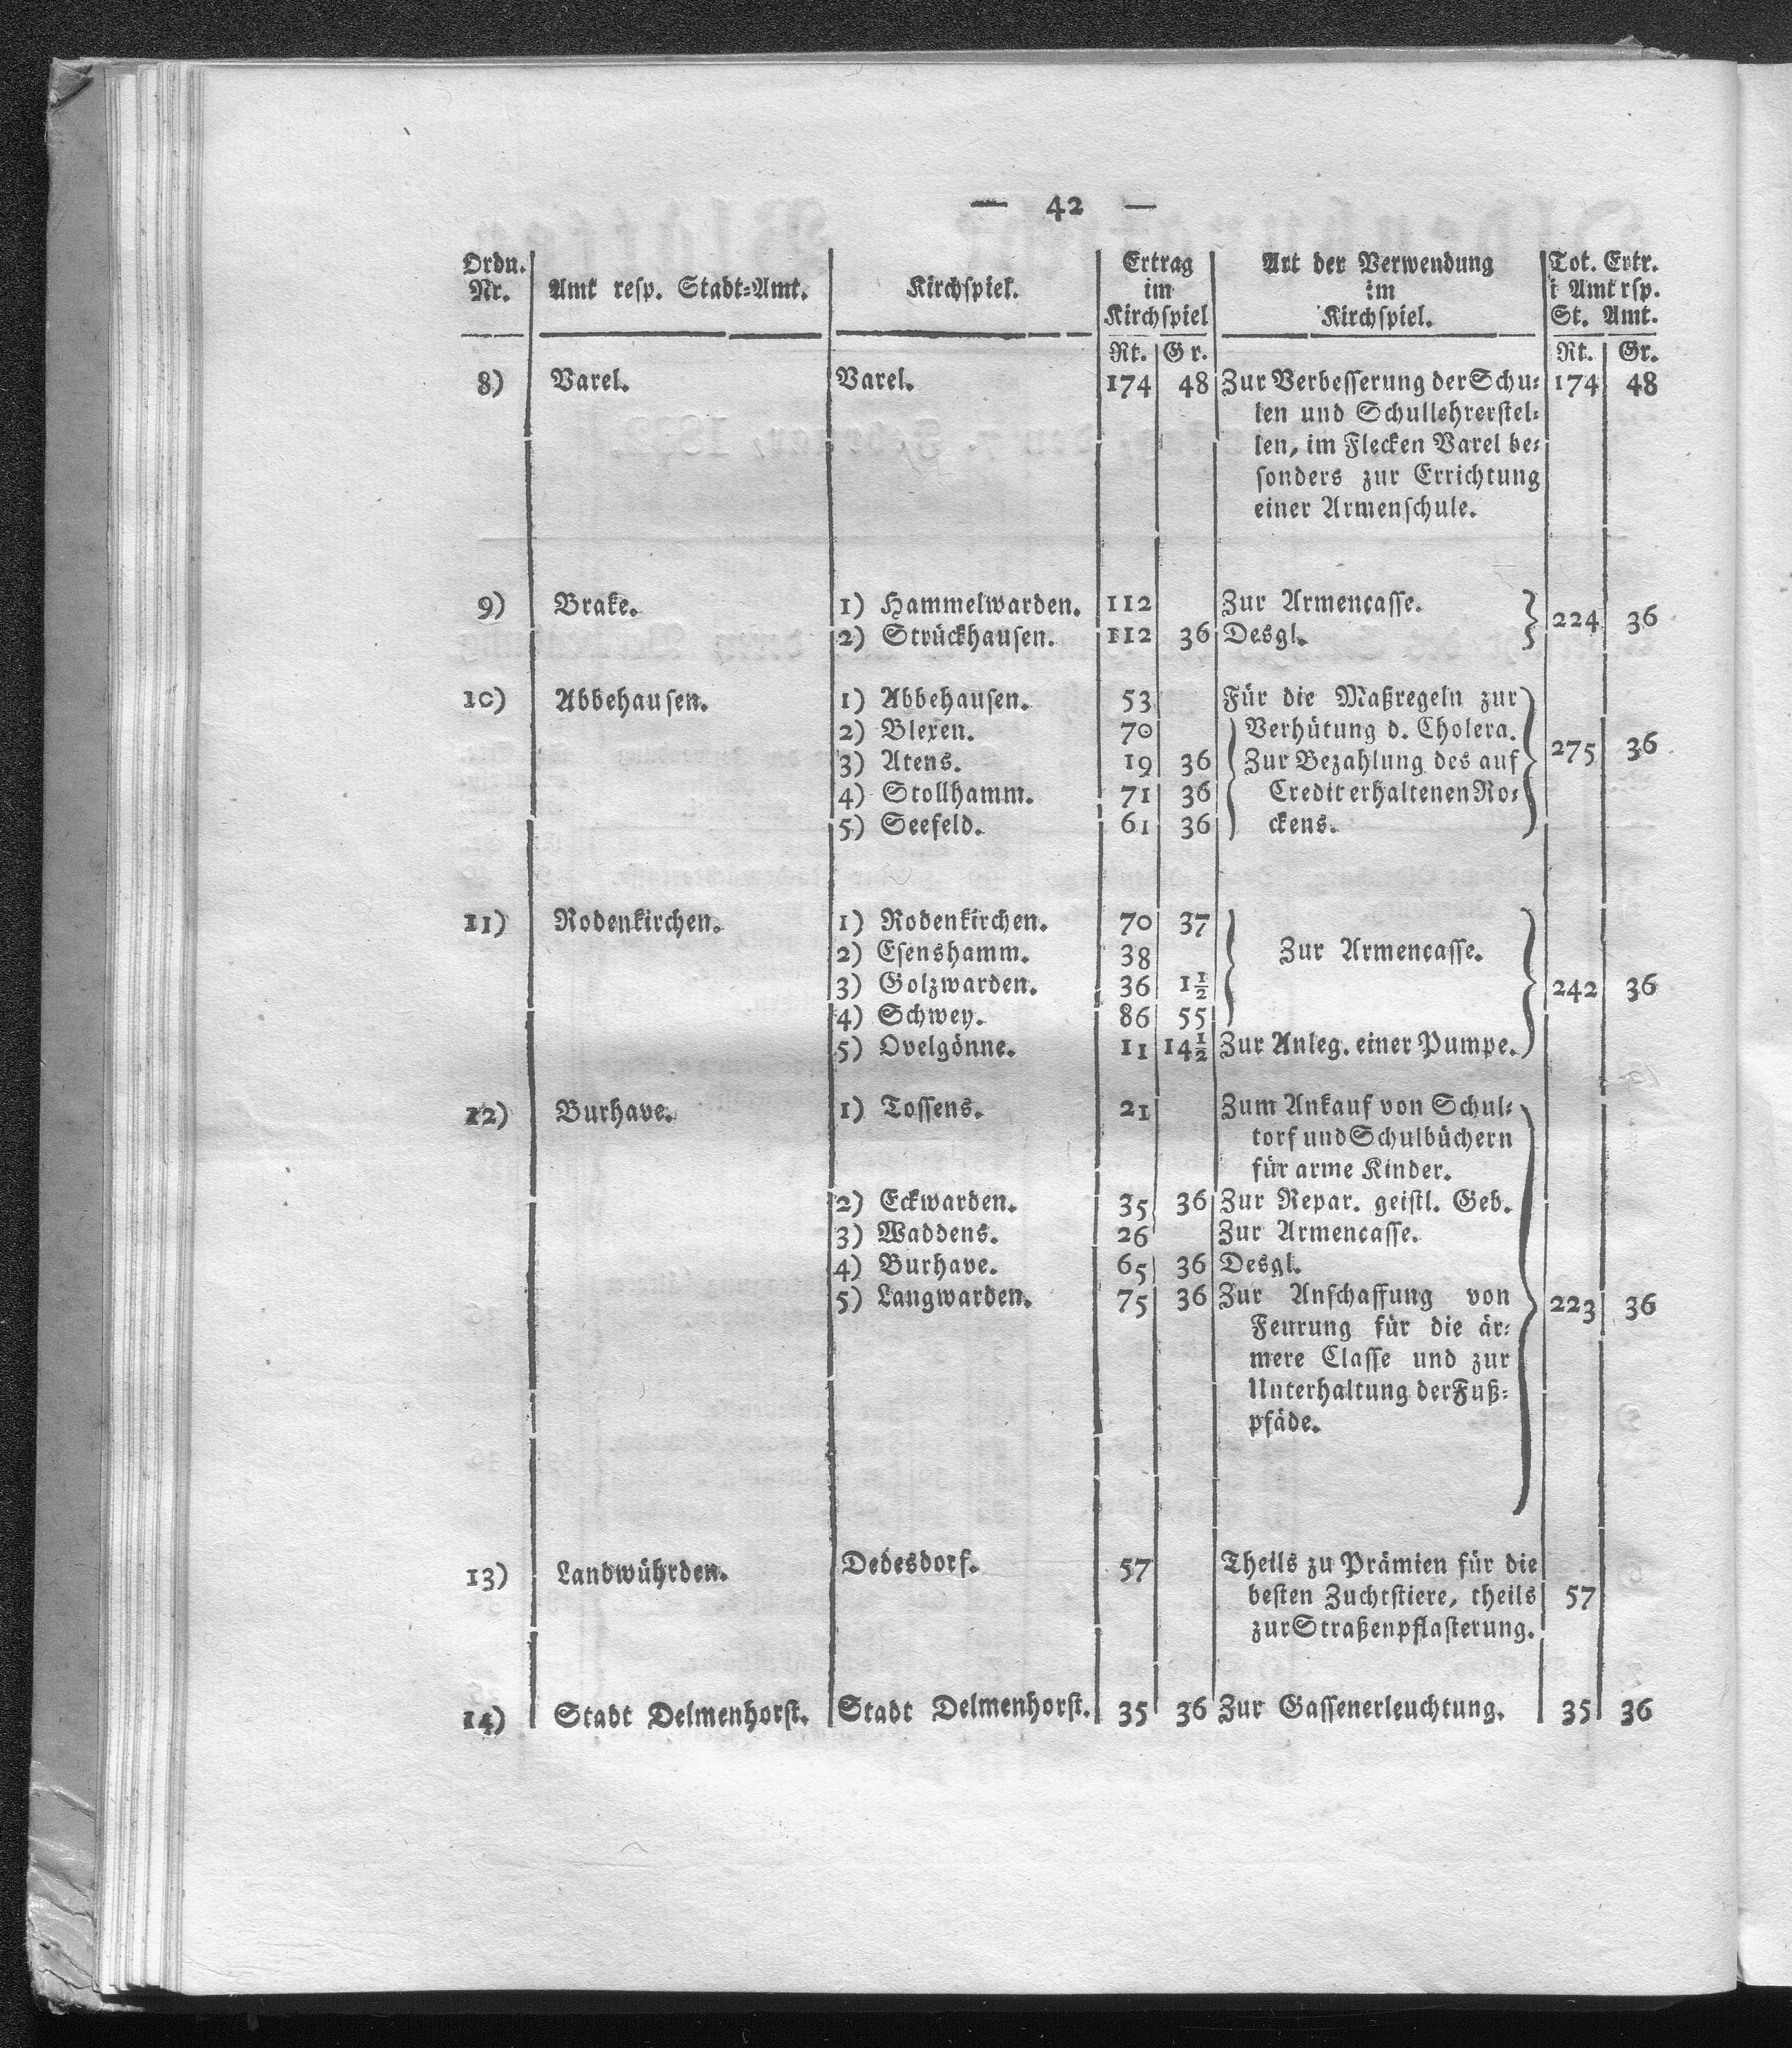 — 42 —
Ordn. Nr. | Amt resp. Stadt-Amt. | Kirchspiel. | Ertrag im Kirchspiel | Art der Verwendung im Kirchspiel. | Tot. Ertr. i Amt rsp. St. Amt.
Rt. | Gr. | Rt. | Gr.
8) Varel. Varel. 174 48 Zur Verbesserung der Schu- 174 48
len und Schullehrerstel-
len, im Flecken Varel be-
sonders zur Errichtung
einer Armenschule.
9) Brake. 1) Hammelwarden. 112 Zur Armencasse. } 224 36
2) Strückhausen. 112 36 Desgl.
10) Abbehausen. 1) Abbehausen. 53 Für die Maßregeln zur
2) Blexen. 70 Verhütung d. Cholera. } 275 36
3) Atens. 19 36 Zur Bezahlung des auf
4) Stollhamm. 71 36 Credit erhaltenen Ro-
5) Seefeld. 61 36 ckens.
11) Rodenkirchen. 1) Rodenkirchen. 70 37
2) Esenshamm. 38 } Zur Armencasse.
3) Golzwarden. 36 1½ } 242 36
4) Schwey. 86 55
5) Ovelgönne. 11 14½ Zur Anleg. einer Pumpe.
12) Burhave. 1) Tossens. 21 Zum Ankauf von Schul-
torf und Schulbüchern
für arme Kinder.
2) Eckwarden. 35 36 Zur Repar. geistl. Geb.
3) Waddens. 26 Zur Armencasse.
4) Burhave. 65 36 Desgl.
5) Langwarden. 75 36 Zur Anschaffung von } 223 36
Feurung für die är-
mere Classe und zur
Unterhaltung der Fuß-
pfäde.
13) Landwührden. Dedesdorf. 57 Theils zu Prämien für die
besten Zuchtstiere, theils 57
zur Straßenpflasterung.
14) Stadt Delmenhorst. Stadt Delmenhorst. 35 36 Zur Gassenerleuchtung. 35 36